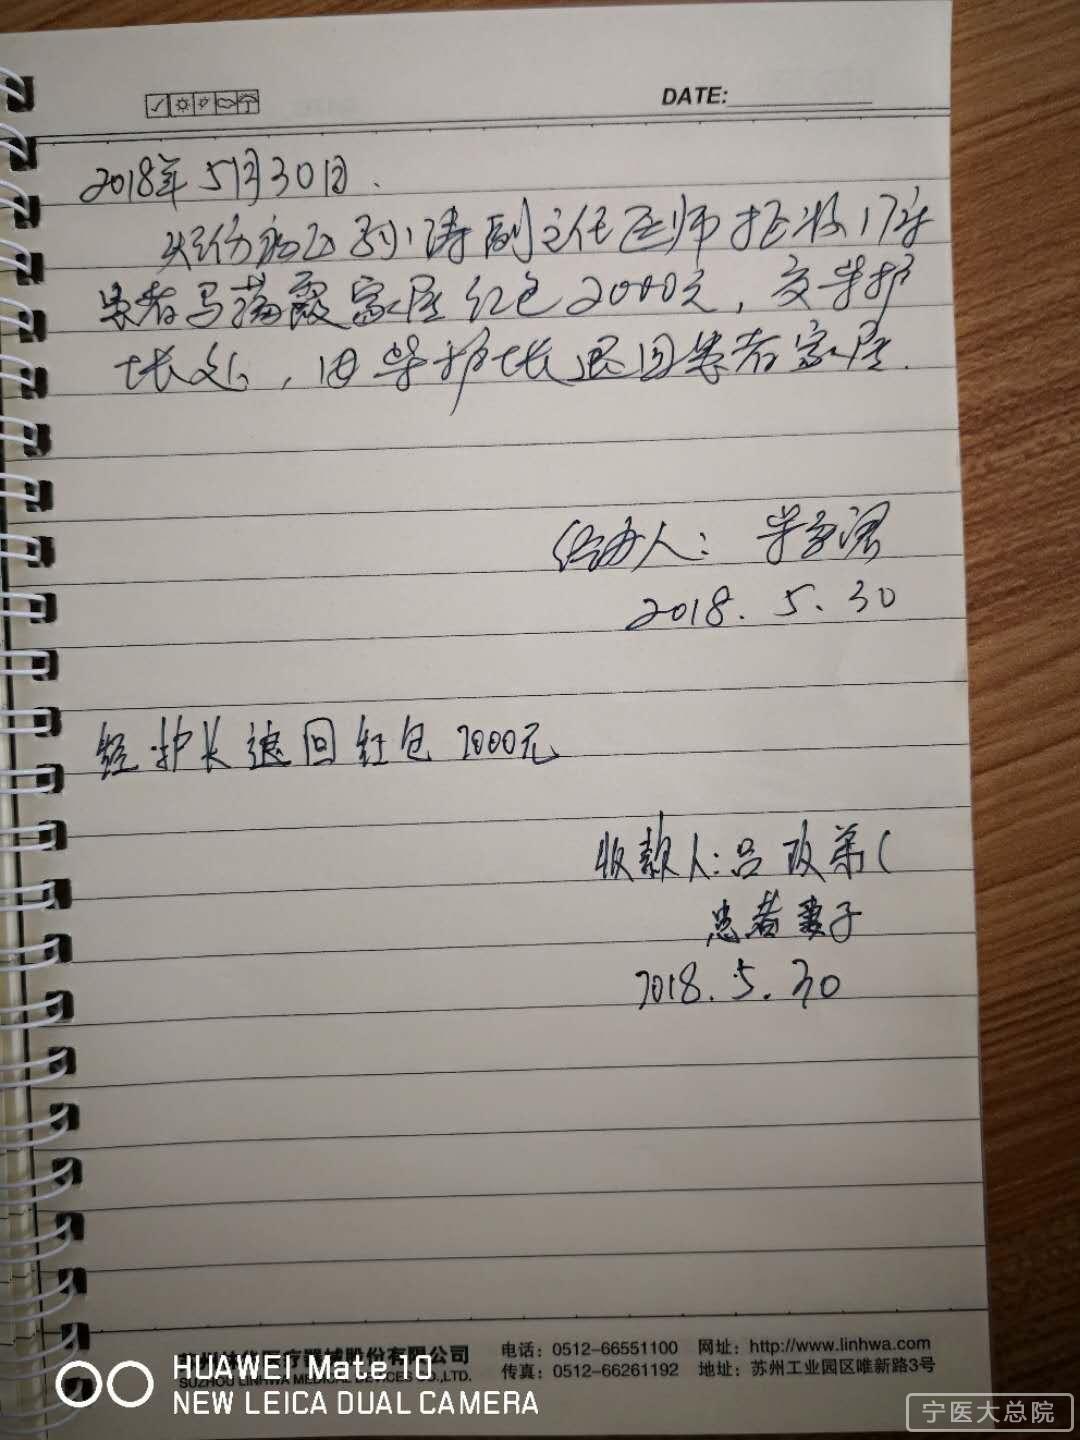 DATE:
2018年5月30日.
孙涛副主任医师拒收17床
患者马 霞家属红包2000元，交 护
长处，由 护长退回患者家属.
经办人：
2018. 5. 30
经护长退回红包2000元
收款人:吕改弟(
患者妻子
2018. 5. 30
医疗器械股份有限公司 电话：0512-66551100 网址：http://www.linhwa.com
SUZHOU LINHWA MEDICAL DEVICES CO.,LTD. 传真：0512-66261192 地址：苏州工业园区唯新路3号
HUAWEI Mate 10
NEW LEICA DUAL CAMERA
宁医大总院